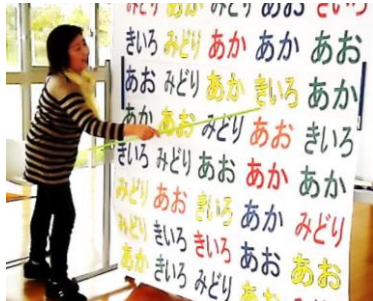 みどり あか みどり あお きいろ
きいろ みどり あか あか あお
あお みどり あか きいろ あか
あか あお みどり あお きいろ
きいろ みどり あお あか あか
みどり あお きいろ あか みどり
みどり きいろ きいろ あお あお
あか きいろ みどり